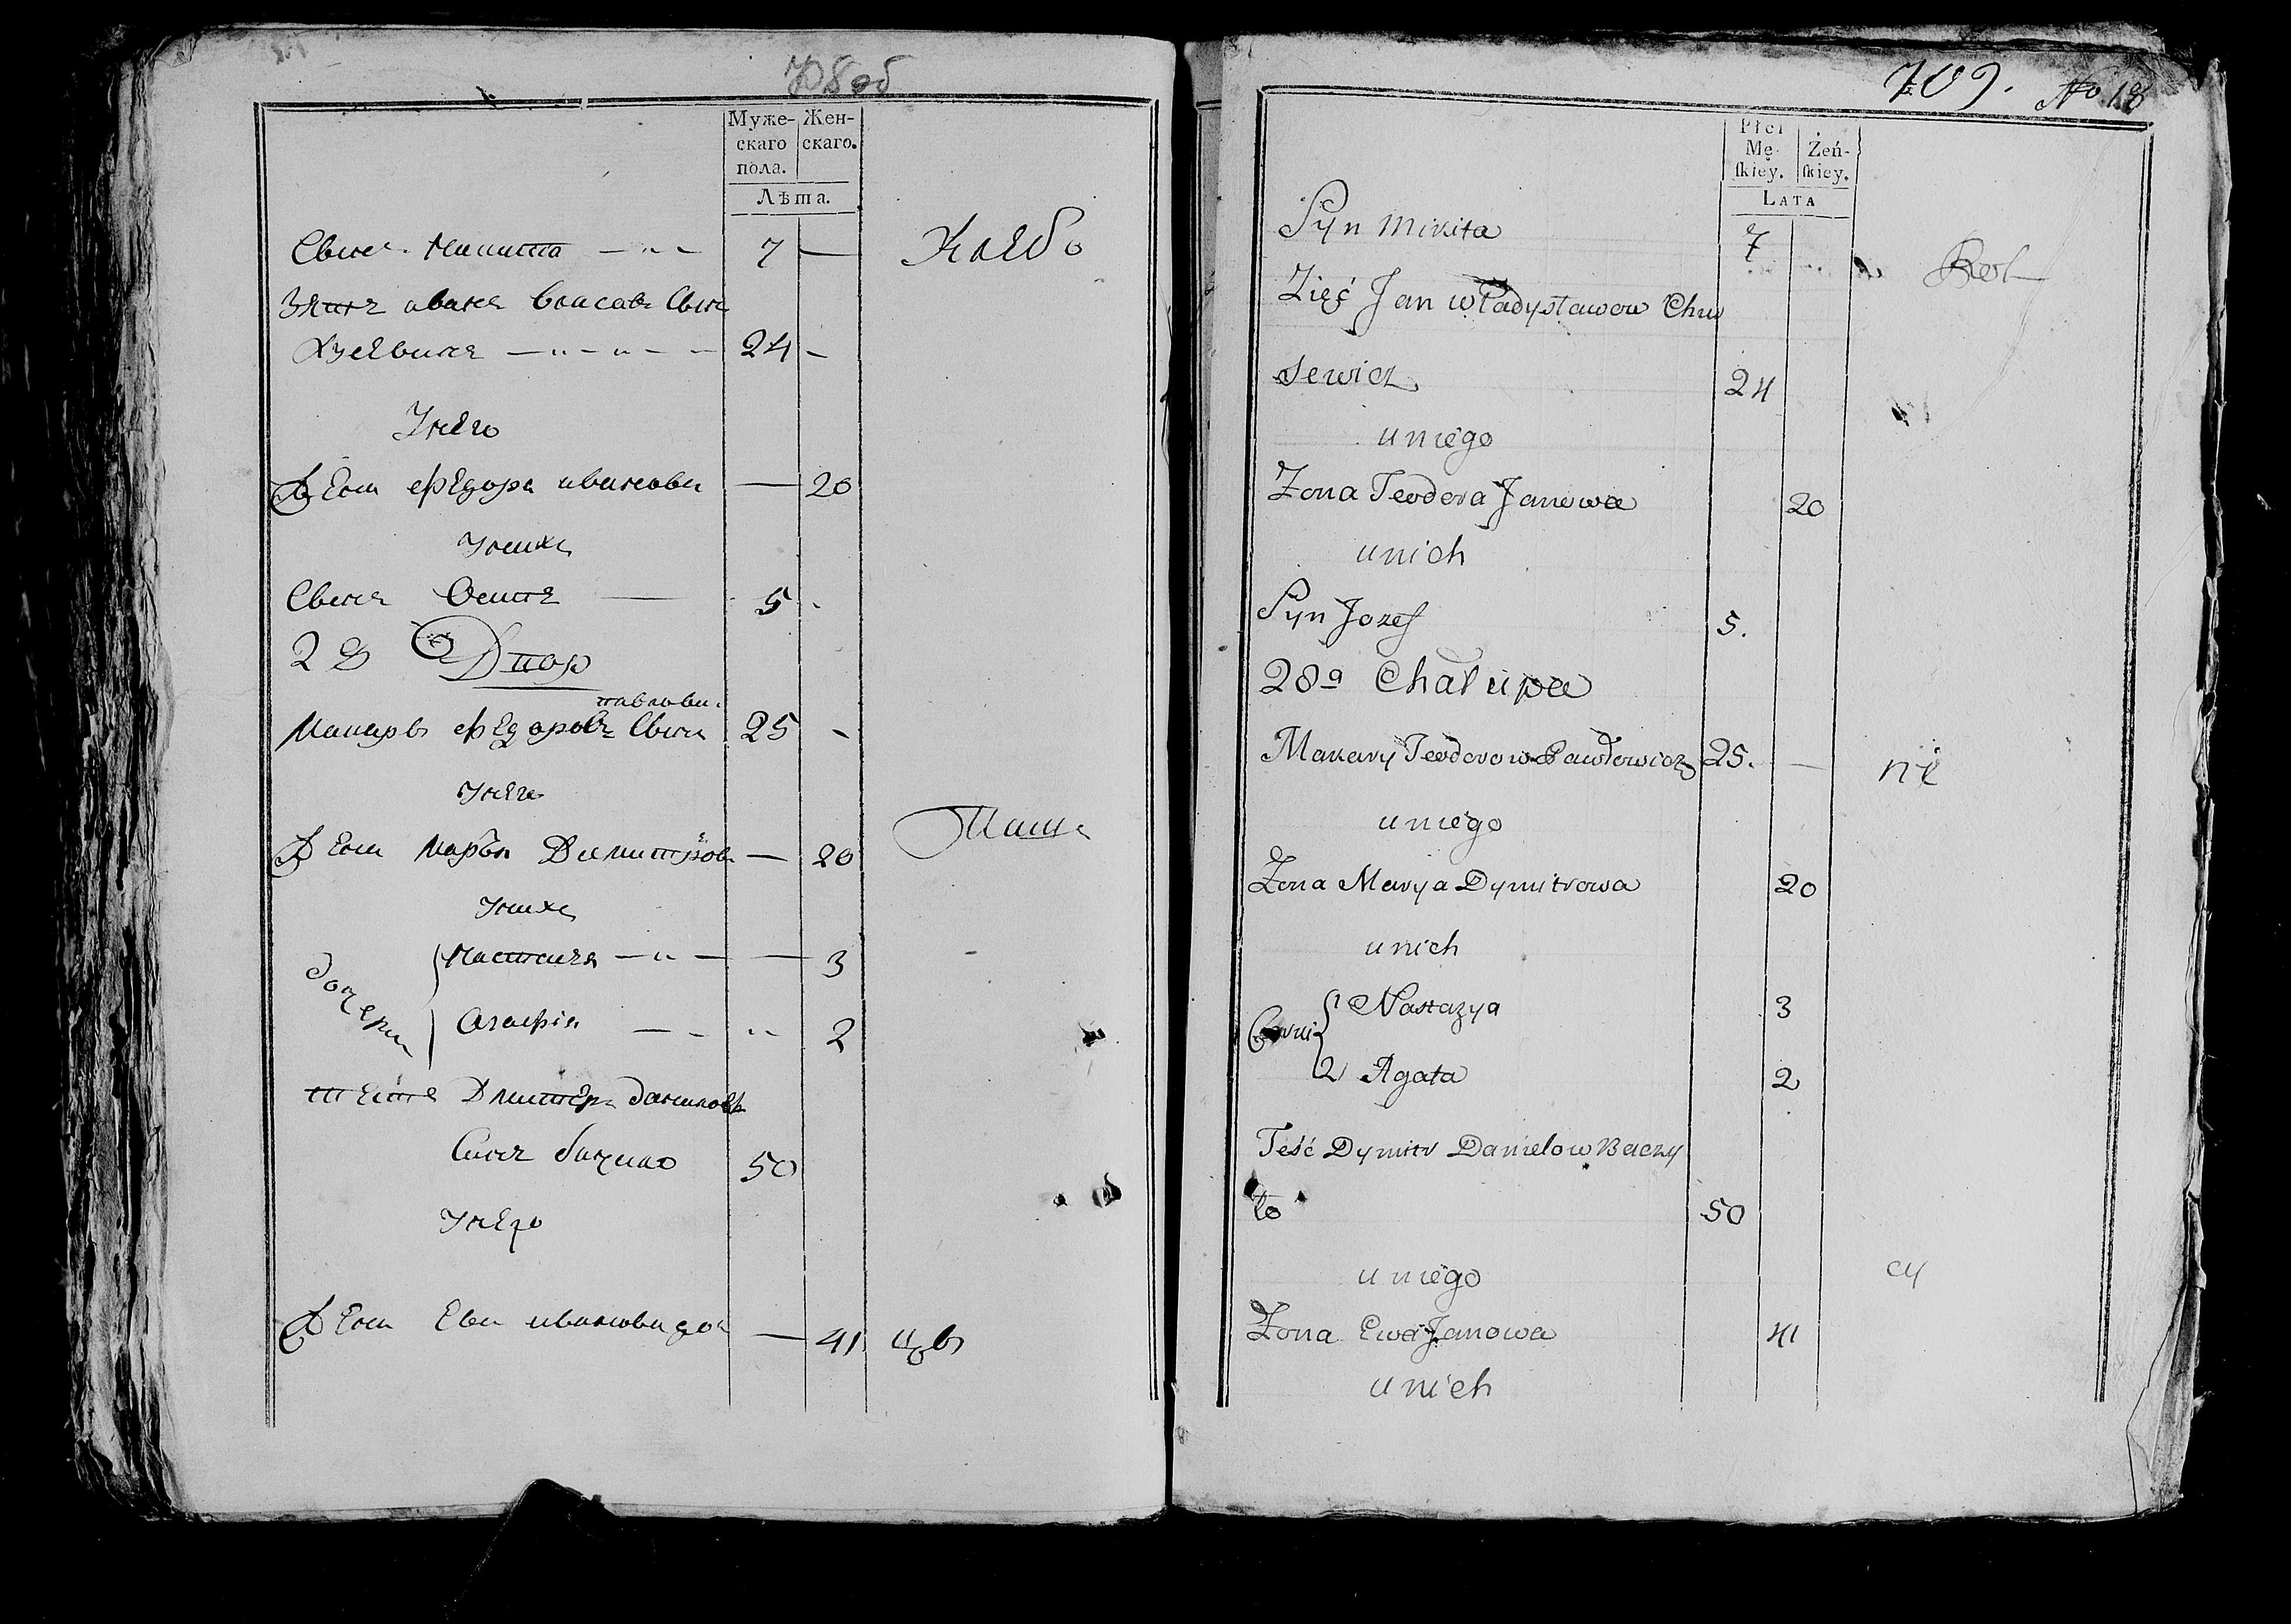 708об
Муже-
скаго
пола.
Жен-
скаго.
Лѣта.
Сынъ Микита — 7 —
Хлѣбо
Зять иванъ Власовъ Сынъ
24 —
У него
Жена Федора иванова — 20
У нихъ
Сынъ Осипъ — 5
28 Двор
павлови.
Макаръ Федоровъ Сынъ 25 -
У него
Жена Марья Димитров — 20
Паш
У нихъ
дочери
Настасья — — 3
Агафія — 2
тесть Дмитеръ данилов
Сынъ бачило 50
У него
Жена Ева иванова доч — 41
709. No 18
Płci
Mę-
ſkiey.
Żeń-
ſkiey.
LATA
Syn Mikita 7
Rol
Zięć Jan Władysławow Chw
sewicz 24
u niego
Zona Teodora Janowa 20
u nich
Syn Jozef 5.
28a Chałupa
Makary Teodorow Pawłowicz 25. —
ni
u niego
Zona Marya Dymitrowa 20
u nich
1 Nastazya 3
2 Agata 2
Teść Dymitr Danielow Baczy
ło 50
u niego
cy
Zona Ewa Janowa 41
u nich